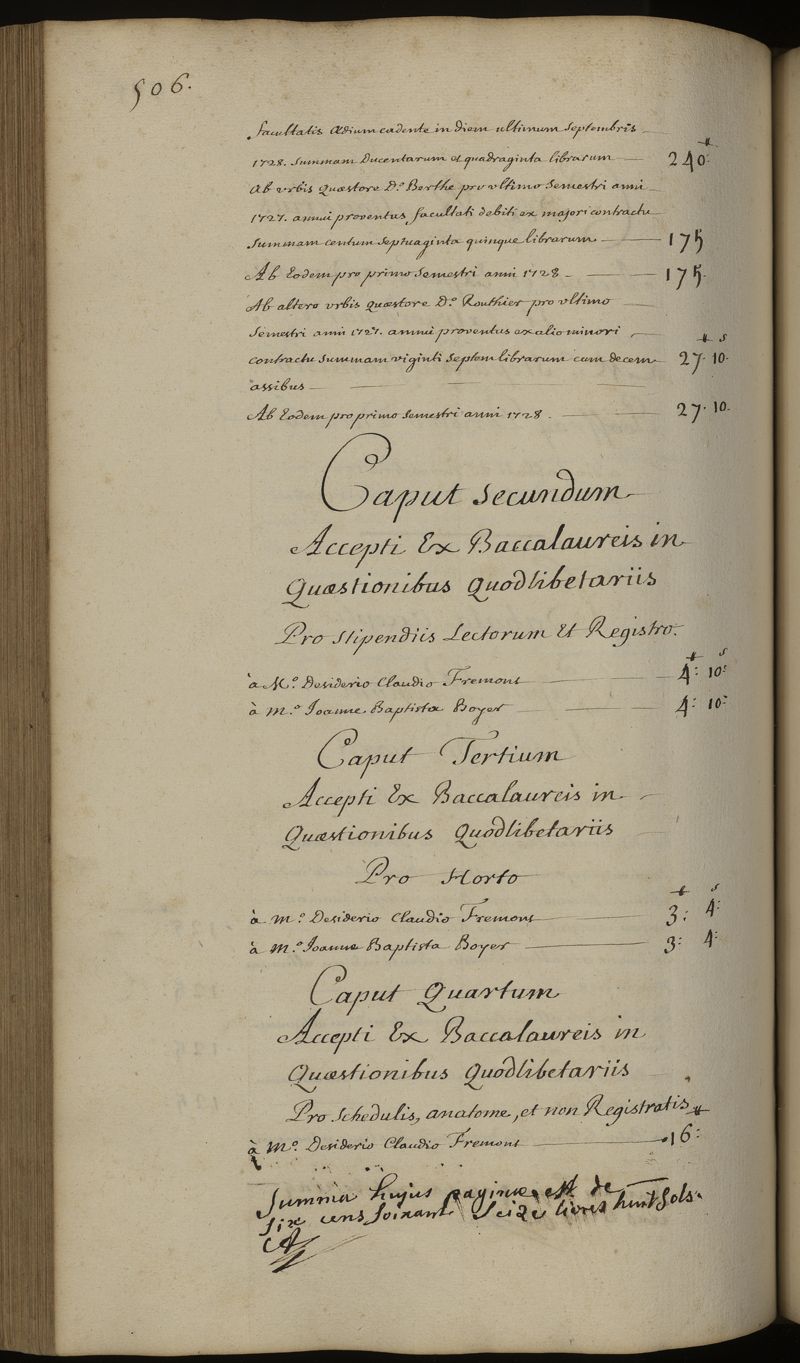 506.
facultatis ædium cadente in diem ultimum septembris
1728. summam Ducentarum et quadraginta librarum — 240ᵗᵗ
Ab vrbis quæstore D.º Berthe pro vltimo semestri anni
1727. annui proventus facultati debiti ex majori contractu
summam centum septuaginta quinque librarum — 175
Ab Eodem pro primo semestri anni 1728 — 175.
Ab altero vrbis quæstore D.º Routhier pro vltimo
semestri anni 1727. annui proventus ex alio minori
contractu summam viginti septem librarum cum decem — 27ᵗᵗ. 10ˢ.
assibus
Ab Eodem pro primo semestri anni 1728. — 27. 10.
Caput secundum
Accepti Ex Baccalaureis in
Quæstionibus Quodlibetariis
Pro stipendiis Lectorum Et Registro.
à M.º Desiderio Claudio Fremont — 4ᵗᵗ: 10ˢ:
à M.º Joanne Baptista Boyer — 4: 10:
Caput Tertium
Accepti Ex Baccalaureis in
Quæstionibus Quodlibetariis
Pro Horto
à M.º Desiderio Claudio Fremont — 3ᵗᵗ: 4ˢ:
à M.º Joanne Baptista Boyer — 3: 4:
Caput Quartum
Accepti Ex Baccalaureis in
Quæstionibus Quodlibetariis
Pro Schedulis, anatome, et non Registratis
à M.º Desiderio Claudio Fremont — 16ᵗᵗ:
Summa hujus paginæ est de
six cens soixante Seize livres huit sols.